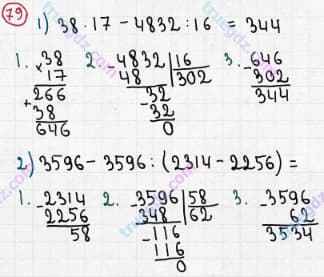 79
1) 38 · 17 - 4832 : 16 = 344
1. 38 2. -4832 | 16 3. -646
× 17 48 302 302
266 -32 344
+ 38 32
646 0
2) 3596 - 3596 : (2314 - 2256) =
1. -2314 2. -3596 | 58 3. -3596
2256 348 62 62
58 -116 3534
116
0